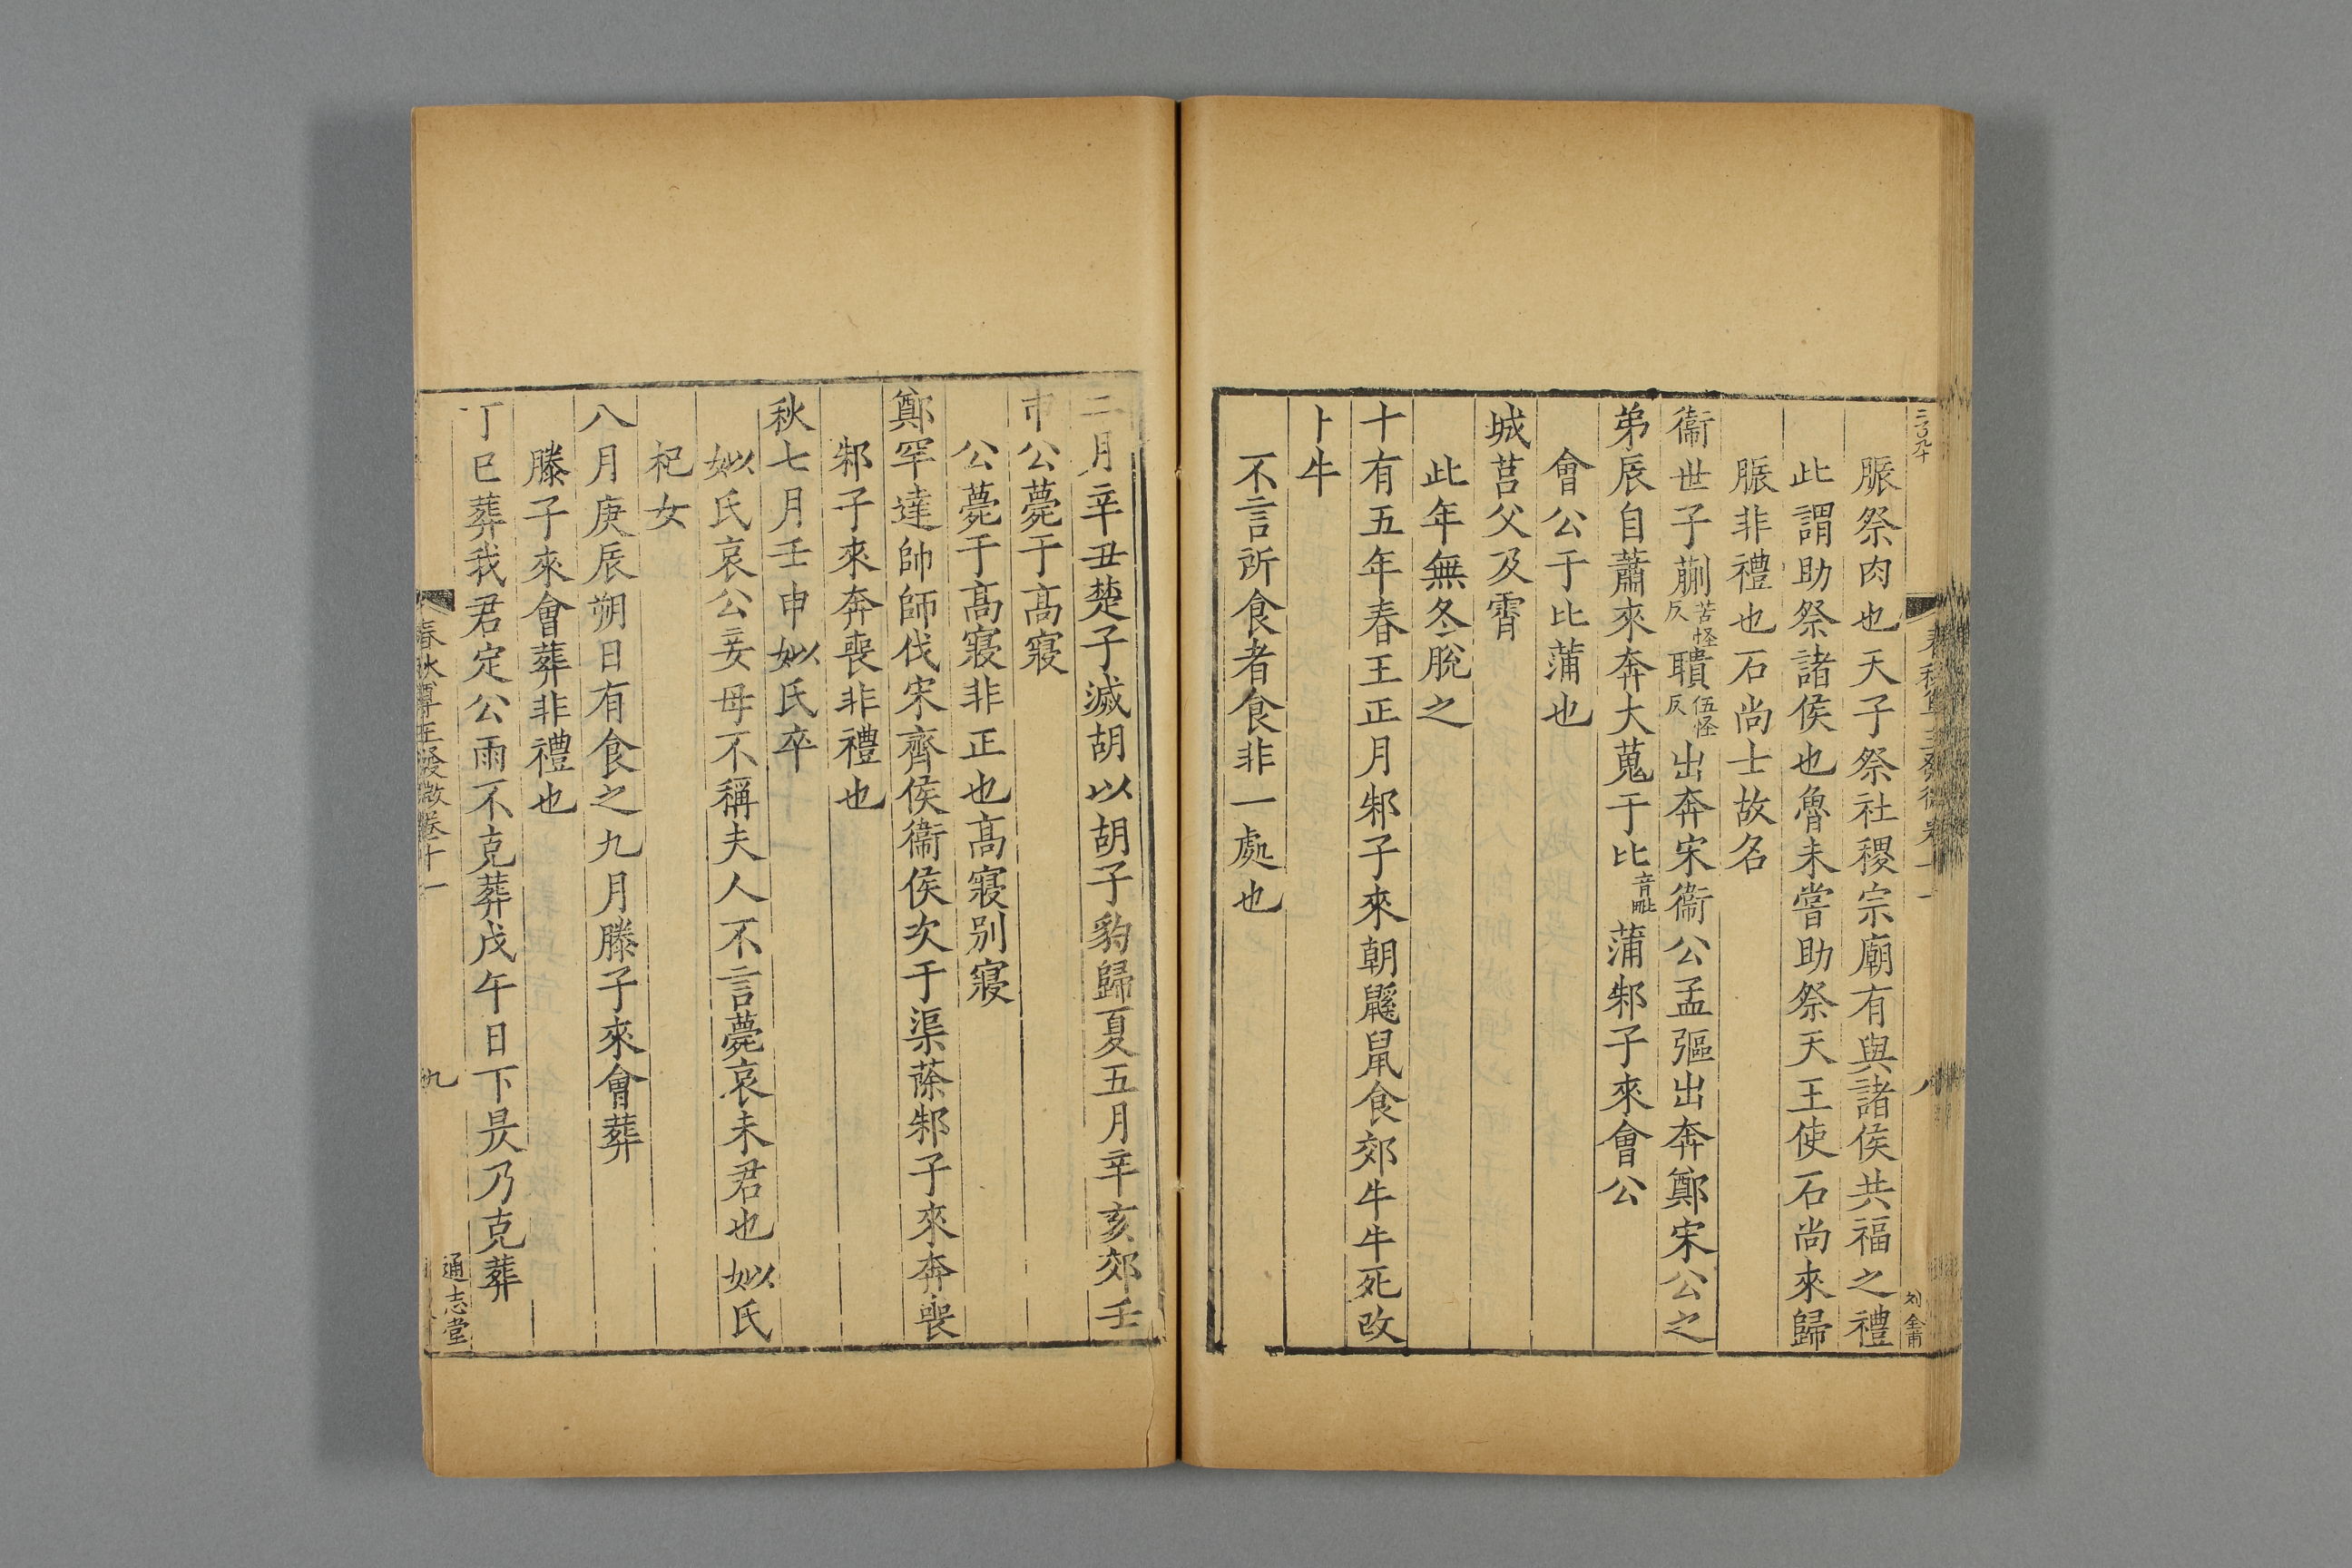 脤祭肉也天子祭社稷宗廟有與諸侯共福之禮
此謂助祭諸侯也魯未嘗助祭天王使石尚來歸
脤非禮也石尚士故名
衞世子蒯苦怪反聵伍怪反出奔宋衞公孟彄出奔鄭宋公之
弟辰自蕭來奔大蒐于比音毗蒲邾子來會公
會公于比蒲也
城莒父及霄
此年無冬脫之
十有五年春王正月邾子來朝鼷鼠食郊牛牛死改
卜牛
不言所食者食非一處也
二月辛丑楚子滅胡以胡子豹歸夏五月辛亥郊壬
申公薨于高寢
公薨于高寢非正也高寢別寢
鄭罕達帥師伐宋齊侯衞侯次于渠蒢邾子來奔喪
邾子來奔喪非禮也
秋七月壬申姒氏卒
姒氏哀公妾母不稱夫人不言薨哀未君也姒氏
杞女
八月庚辰朔日有食之九月滕子來會葬
滕子來會葬非禮也
丁巳葬我君定公雨不克葬戊午日下昃乃克葬
春秋尊王發微卷十一
九
通志堂